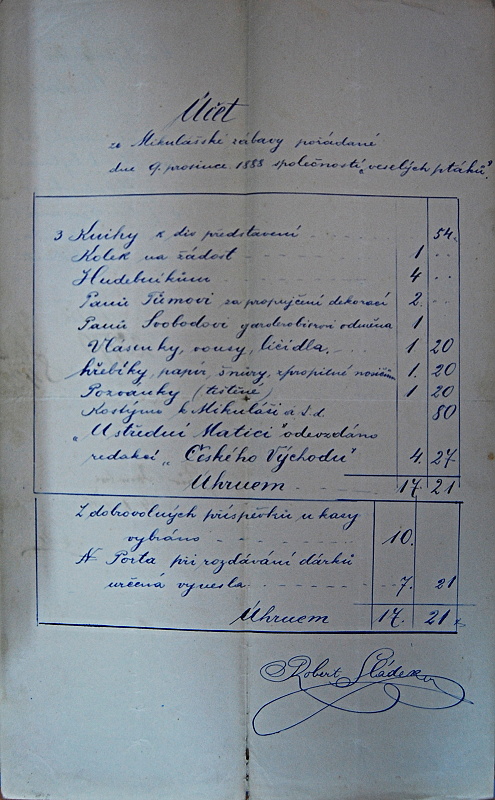 Účet
ze Mikulášské zábavy pořádané
dne 9. prosince 1888 společností „veselých ptáků“.
3 Knihy k div. představení 54.
Kolek na žádost 1
Hudebníkům 4
Panu Tůmovi za propujčení dekorací 2.
Panu Svobodovi garderobierovi odměna 1
Vlásenky, vousy, líčidla. 1 20
hřebíky, papír, šňůry, zpropitné nosičům 1. 20
Pozvánky (tištěné) 1 20
Kostýmné k Mikuláši a t. d. 80
„Ústřední Matici“ odevzdáno
redakcí „Českého Východu“ 4. 27
Úhrnem 17. 21
Z dobrovolných příspěvků u kasy
vybráno 10.
Porta při rozdávání dárků
určená vynesla 7. 21
Úhrnem 17. 21
Robert Sládek